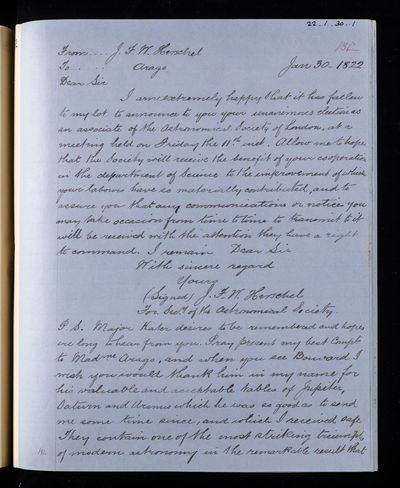 22.1.30.1
From.... J. F. W. Herschel
To..... Arago
Jan 30. 1822
Dear Sir
I am extremely happy that it has fallen
to my lot to announce to you your unanimous election as
an associate of the Astronomical Society of London, at a
meeting held on Friday the 11th inst. Allow me to hope
that the Society will receive the benefit of your cooperation
in the department of Science to the improvement of which
your labours have so materially contributed, and to
assure you that any communications or notices you
may take occasion from time to time to transmit to it
will be received with the attention they have a right
to command. I remain Dear Sir
With sincere regard
Yours
(Signed) J. F. W. Herschel
For. Secy. of the Astronomical Society.
P. S. Major Kater desires to be remembered and hopes
ere long to hear from you. Pray present my best Compts
to Madme Arago, and when you see Bouvard I
wish you would thank him in my name for
his valuable and acceptable tables of Jupiter,
Saturn and Uranus which he was so good as to send
me some time since, and which I received safe
They contain one of the most striking triumphs
of modern astronomy in the remarkable result that